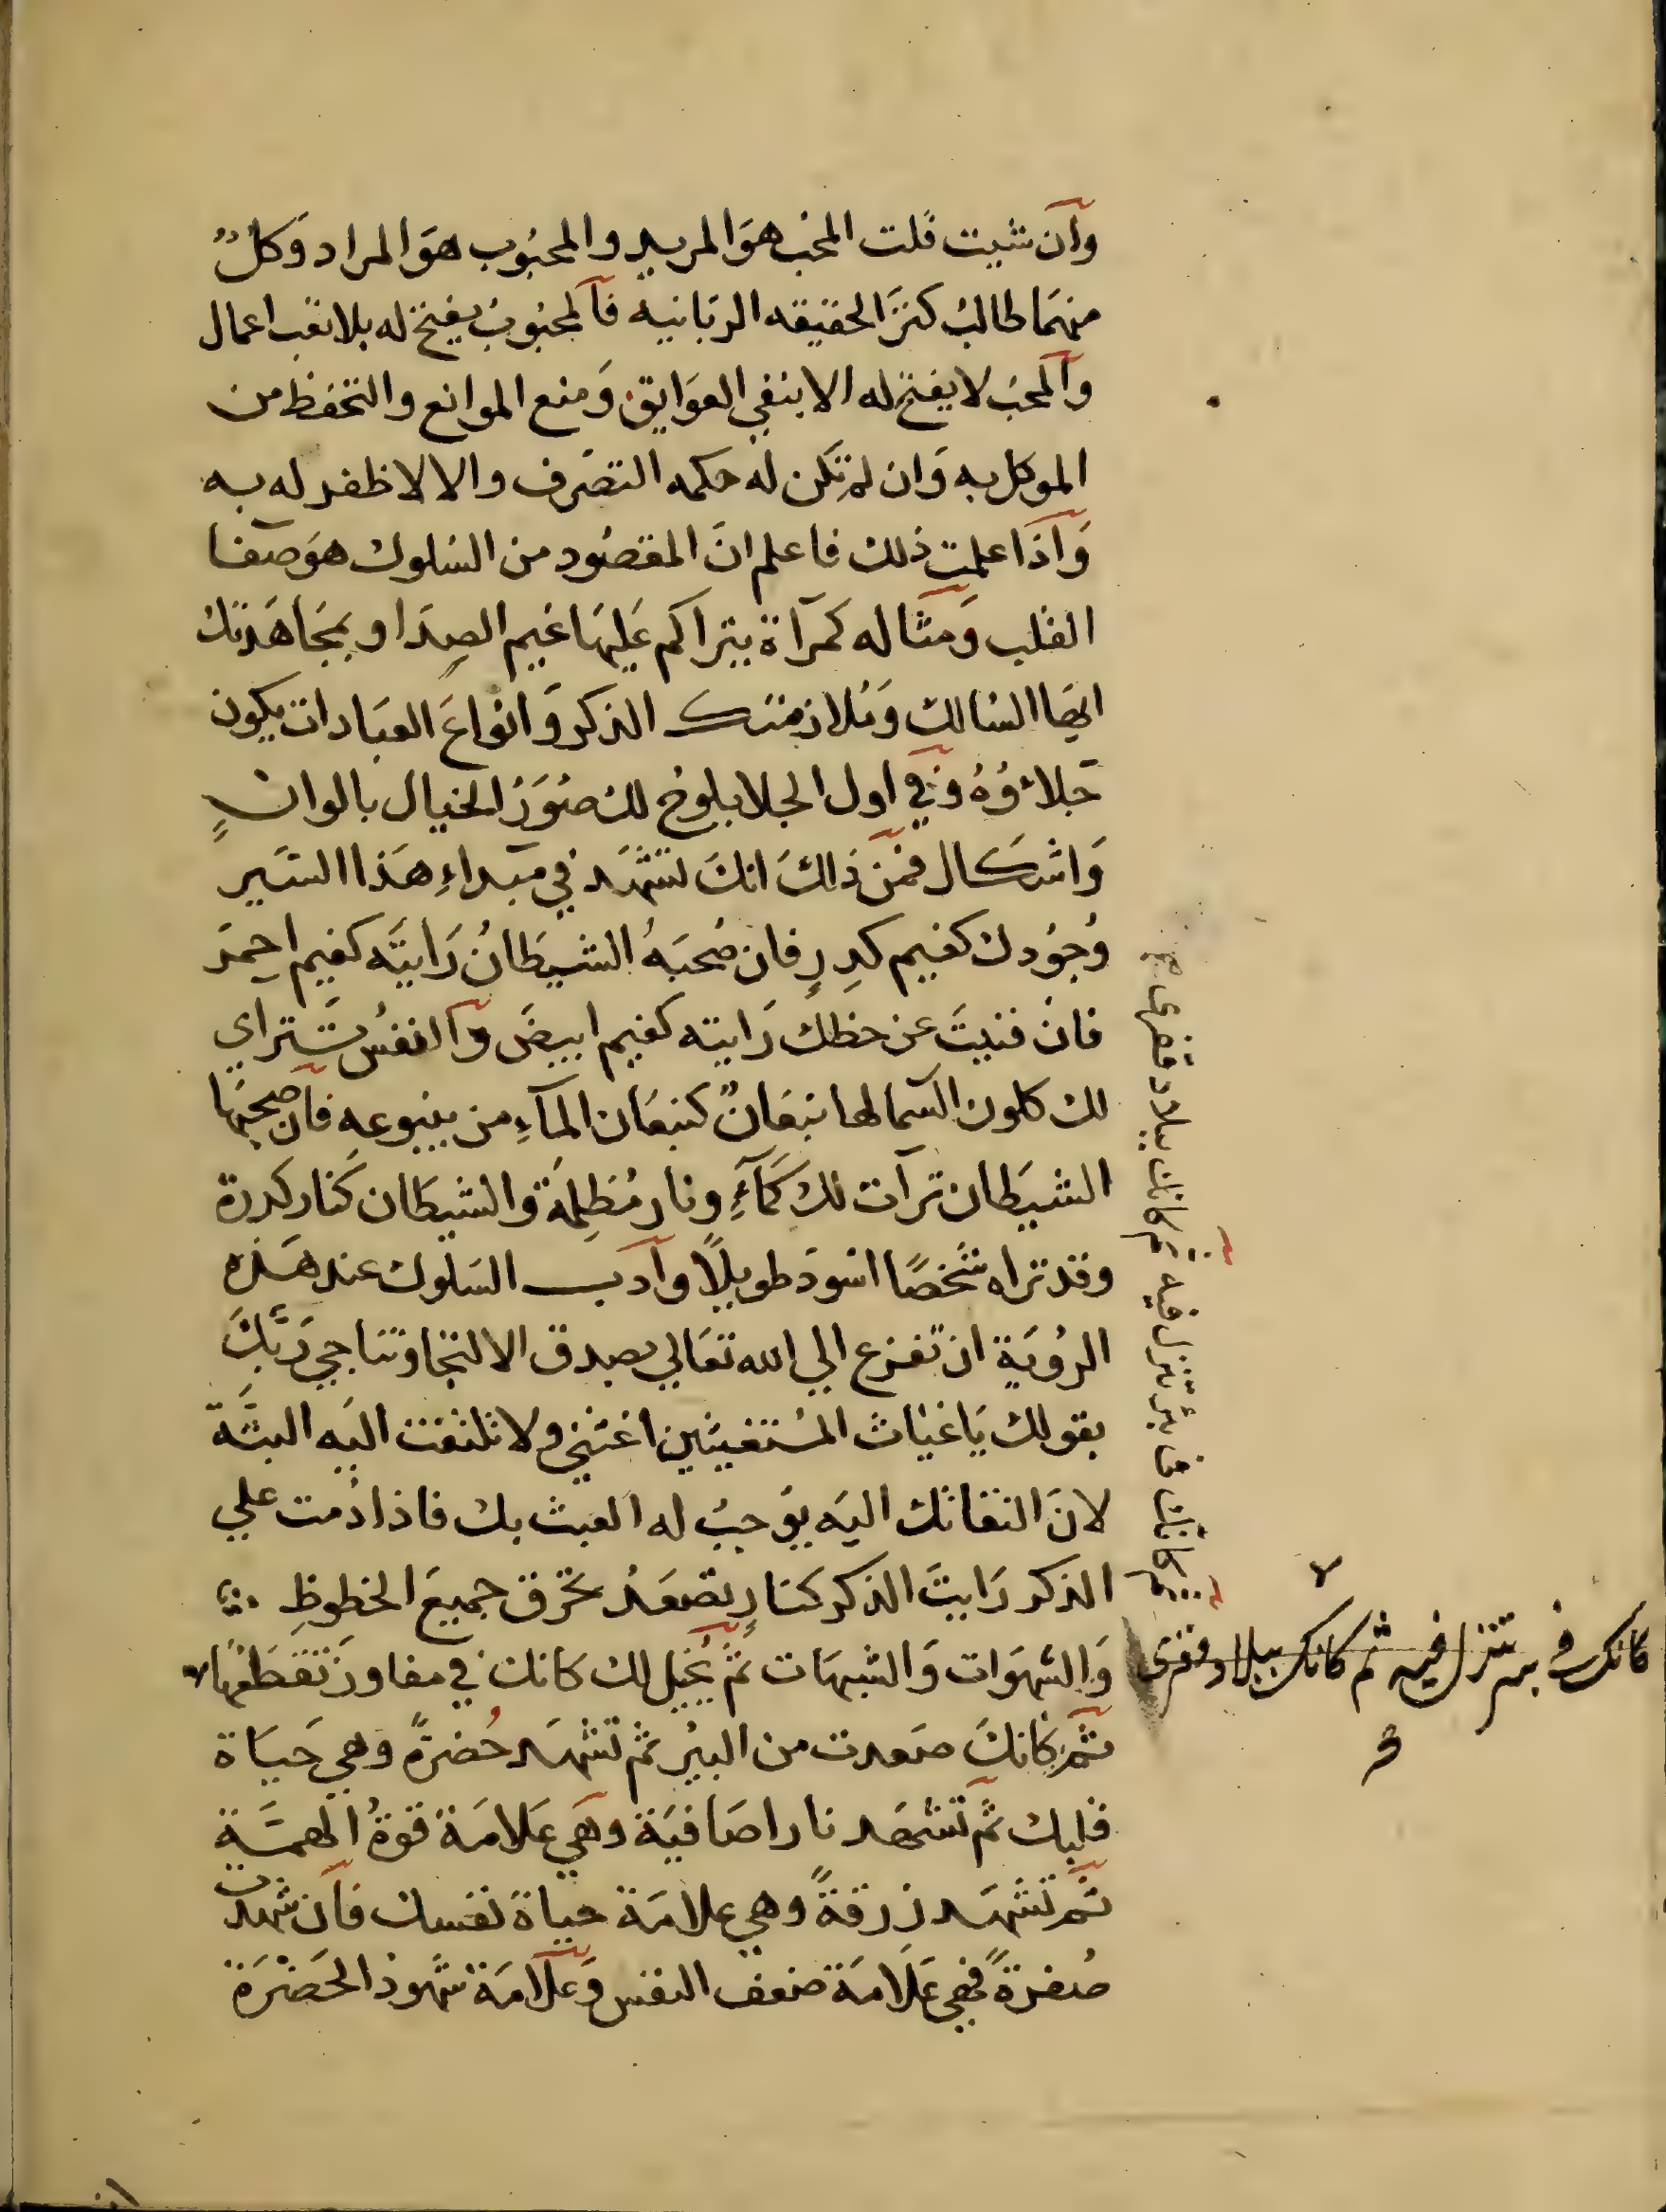 وان شيت قلت المحب هوَ المريد والمحبُوب هوَ المراد وَكلٌ
منهمَا طالبُ كنزَ الحقيقه الربَانيه فالمحبُوبُ يفتح له بلا تعب اعمال
والمحبُ لا يفتح له الا بنفي العوَايق وَمنع الموانع والتحفظ من
الموكل به وَان لم تكن له حكمه التصَرف والا لا ظفر له به
وَاذا علمت ذلك فاعلم انَ المقصُود من السُلوك هوَ صفا
القلب وَمثاله كمرآة يتراكم عَليهَا غيم الصِدَا وبمجَاهَدتك
ايهَا السَالك وَمُلازمتك الذكر وَانوَاعَ العبَادات يكون
جَلاؤُهُ وفي اول الجلا يلوحُ لك صُوَرُ الخيال بالوانٍ
وَاشكَال فمن ذَالكَ انكَ تشهَد في مبداءِ هَذا السَير
وُجوُدك كغيم كدِرٍ فان صُحبَهُ الشيطَانُ رَايتَه كغيم احمرَ
فانَ فنيتَ عن حظك رَايته كغيم ابيضَ والنفسُ تتراي
لك كلون السَما لها نبعَانٌ كنبعَان المآءِ من ينبوعه فان صحبَها
الشيطَان ترآت لك كمآءٍ ونار مُظلِمَة والشيطَان كنَار كدرة
وقد تراه شَخصًا اسوَد طويلًا وادب السَلوك عند هَذه
الروُيَة ان تفزع الي الله تعَالي بصِدق الالتجا وتناجي رَبَّكَ
بقولك يَا غيَاث المسُتغيثين اغثني ولا تلتفت اليَه البتَّة
لانَ التفاتك اليَه يوَجبُ له العبث بك فاذا دُمت علي
الذكر رَايتَ الذكر كنَارٍ تصَعَدُ تحرق جميعَ الحظوظِ
وَالشهَوات وَالشبهَات ثم يُخيل لك كانك في مفاوز تقطَعُهَا
ثم كانكَ صَعدت من البيُر ثم تشهَد خُضرةً وهي حَيَاة
قلبك ثم تشهَد نارا صَافيَة وَهي عَلامَة قوةُ الهمَّة
ثم تشهَد زرقةً وهي علامَة حيَاة نفسك فان شهدت
صُفرةً فهي عَلَامَة ضعف النفس وَعلَامَة شهود الحَضْرَة
ثم كانك في بئر تنزل فيه ثم كانك ببلاد وقرى
كانك في بير تنزل فيه ثم كانك ببلاد وقرى